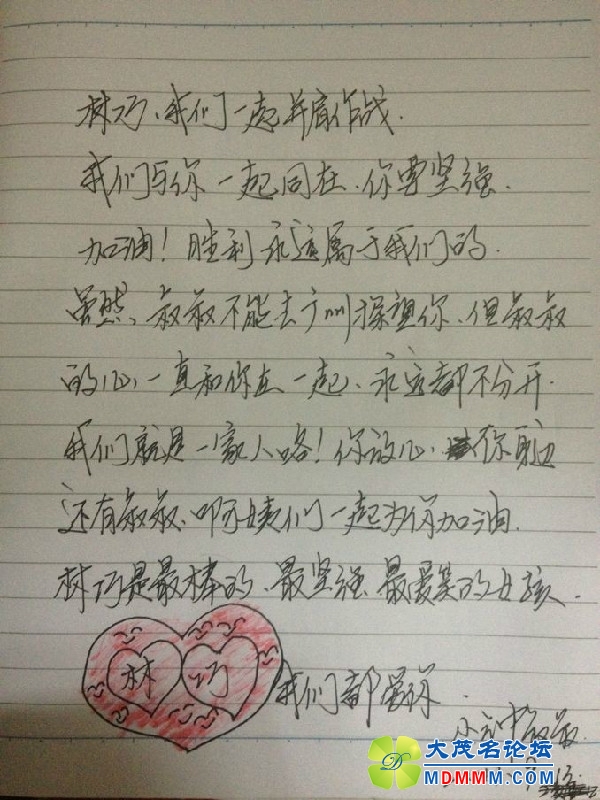 林巧、我们一起并肩作战.
我们与你一起同在、你要坚强.
加油！胜利永远属于我们的.
虽然、叔叔不能去广州探望你、但叔叔
的心一直和你在一起、永远都不分开.
我们就是一家人咯！你放心、你身边
还有叔叔、阿姨们一起为你加油.
林巧是最棒的、最坚强、最爱笑的女孩.
林 巧
我们都爱你.
叔叔.
大茂名论坛
MDMMM.COM